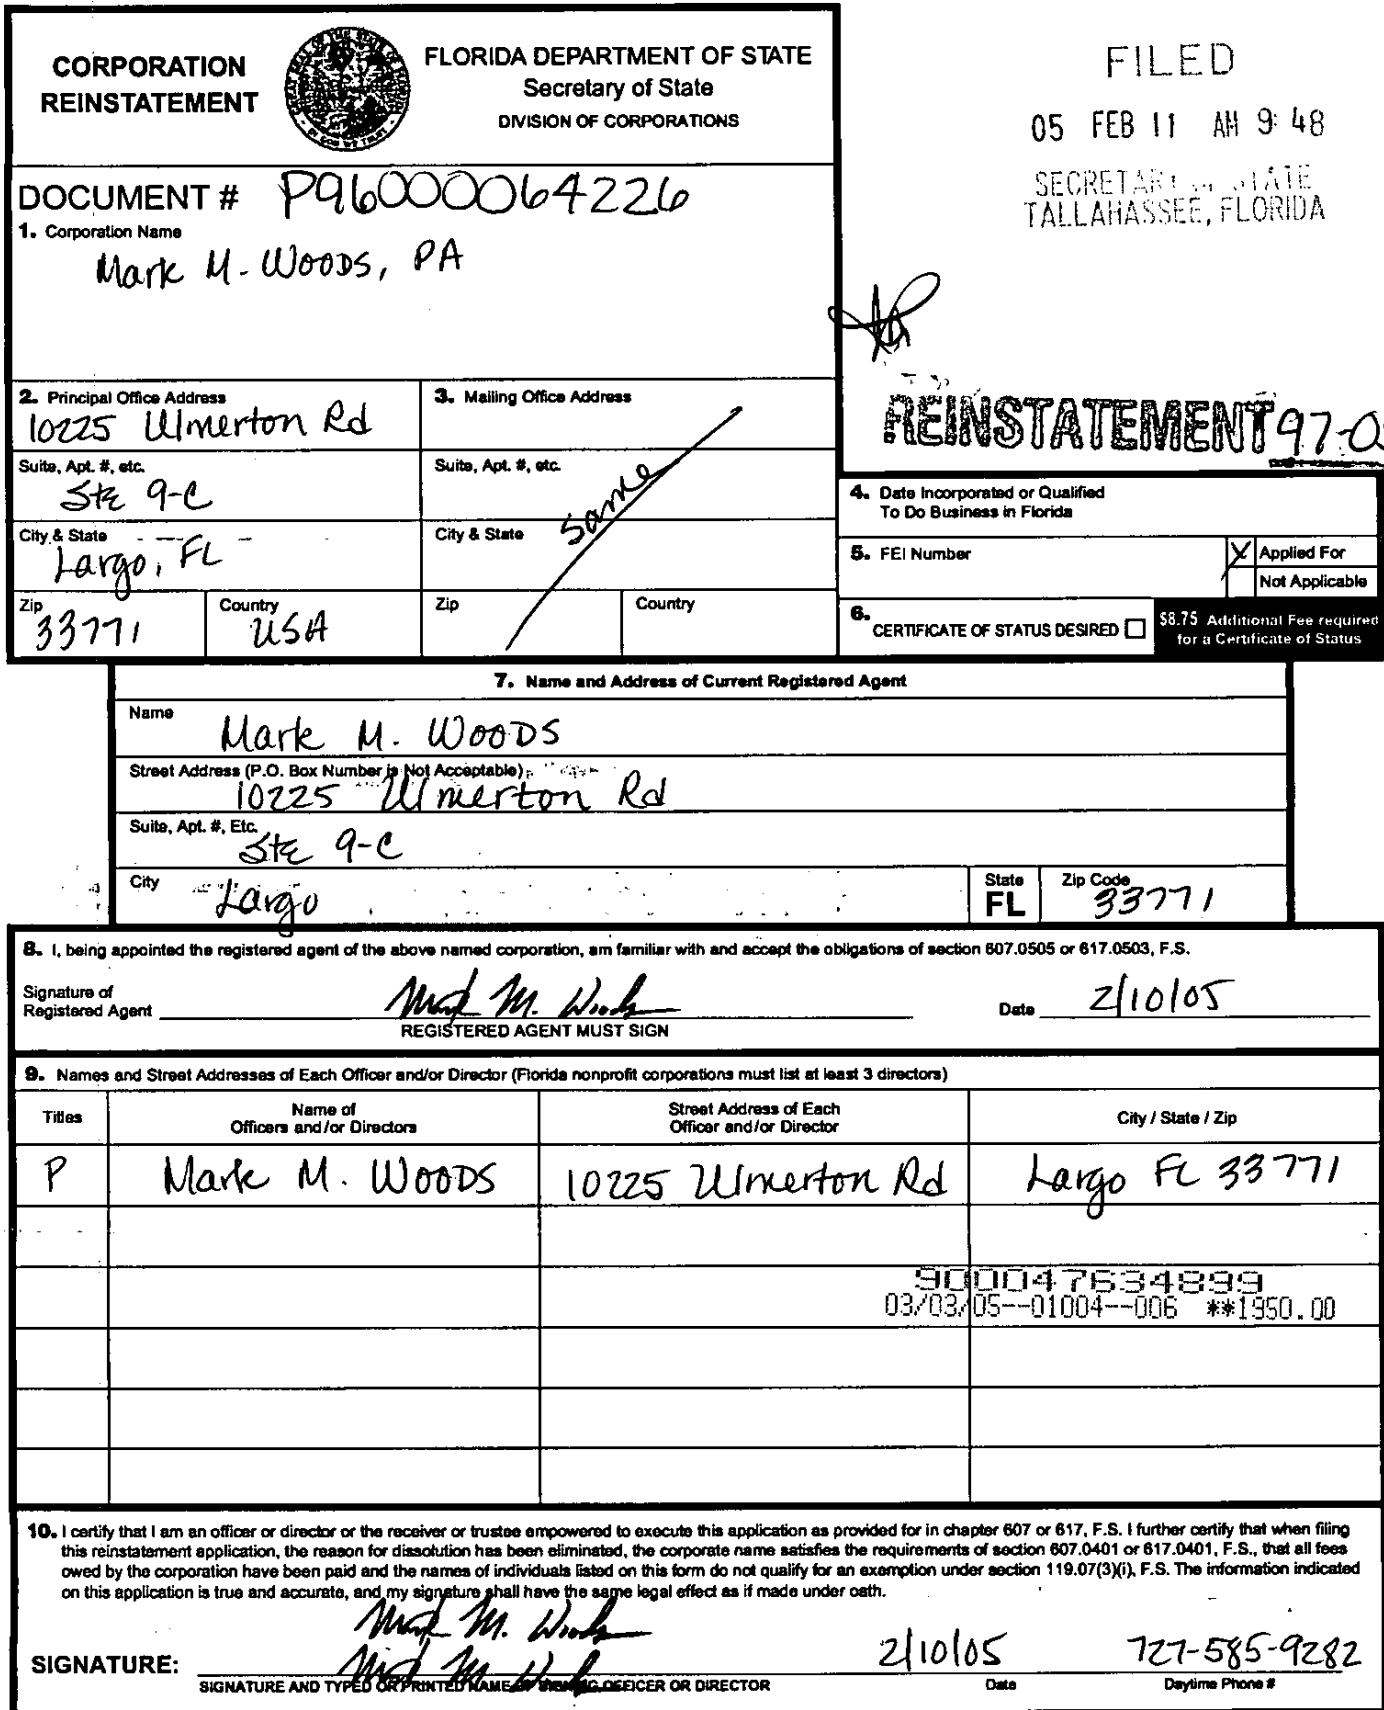 CORPORATION
REINSTATEMENT
FLORIDA DEPARTMENT OF STATE
Secretary of State
DIVISION OF CORPORATIONS
FILED
05 FEB 11 AM 9:48
SECRETARY OF STATE
TALLAHASSEE, FLORIDA
DOCUMENT # P96000064226
1. Corporation Name
Mark M. Woods, PA
REINSTATEMENT 97-0
2. Principal Office Address
10225 Ulmerton Rd
3. Mailing Office Address
Suite, Apt. #, etc.
Ste 9-C
Suite, Apt. #, etc.
Same
City & State
Largo, FL
City & State
Zip
33771
Country
USA
Zip
Country
4. Date Incorporated or Qualified
To Do Business in Florida
5. FEI Number
X Applied For
Not Applicable
6. CERTIFICATE OF STATUS DESIRED
$8.75 Additional Fee required
for a Certificate of Status
7. Name and Address of Current Registered Agent
Name
Mark M. Woods
Street Address (P.O. Box Number is Not Acceptable)
10225 Ulmerton Rd
Suite, Apt. #, Etc.
Ste 9-C
City
Largo
State
FL
Zip Code
33771
8. I, being appointed the registered agent of the above named corporation, am familiar with and accept the obligations of section 607.0505 or 617.0503, F.S.
Signature of
Registered Agent Mark M. Woods
REGISTERED AGENT MUST SIGN
Date 2/10/05
9. Names and Street Addresses of Each Officer and/or Director (Florida nonprofit corporations must list at least 3 directors)
Titles
Name of
Officers and/or Directors
Street Address of Each
Officer and/or Director
City / State / Zip
P Mark M. Woods 10225 Ulmerton Rd Largo FL 33771
900047634899
03/03/05--01004--006 **1950.00
10. I certify that I am an officer or director or the receiver or trustee empowered to execute this application as provided for in chapter 607 or 617, F.S. I further certify that when filing
this reinstatement application, the reason for dissolution has been eliminated, the corporate name satisfies the requirements of section 607.0401 or 617.0401, F.S., that all fees
owed by the corporation have been paid and the names of individuals listed on this form do not qualify for an exemption under section 119.07(3)(i), F.S. The information indicated
on this application is true and accurate, and my signature shall have the same legal effect as if made under oath.
Mark M. Woods
SIGNATURE: Mark M. Woods 2/10/05 727-585-9282
SIGNATURE AND TYPED OR PRINTED NAME OF SIGNING OFFICER OR DIRECTOR Date Daytime Phone #